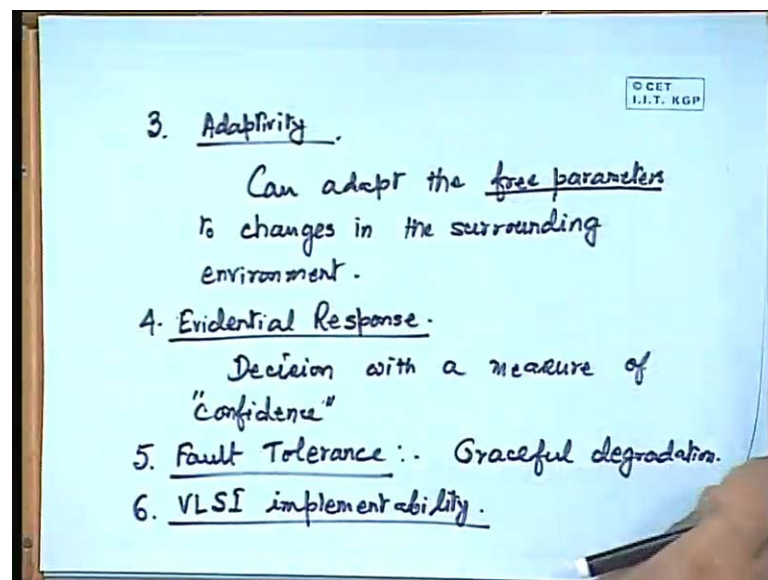 © CET
I.I.T. KGP
3. Adaptivity.
Can adapt the free parameters
to changes in the surrounding
environment.
4. Evidential Response.
Decision with a measure of
"Confidence"
5. Fault Tolerance:- Graceful degradation.
6. VLSI implementability.